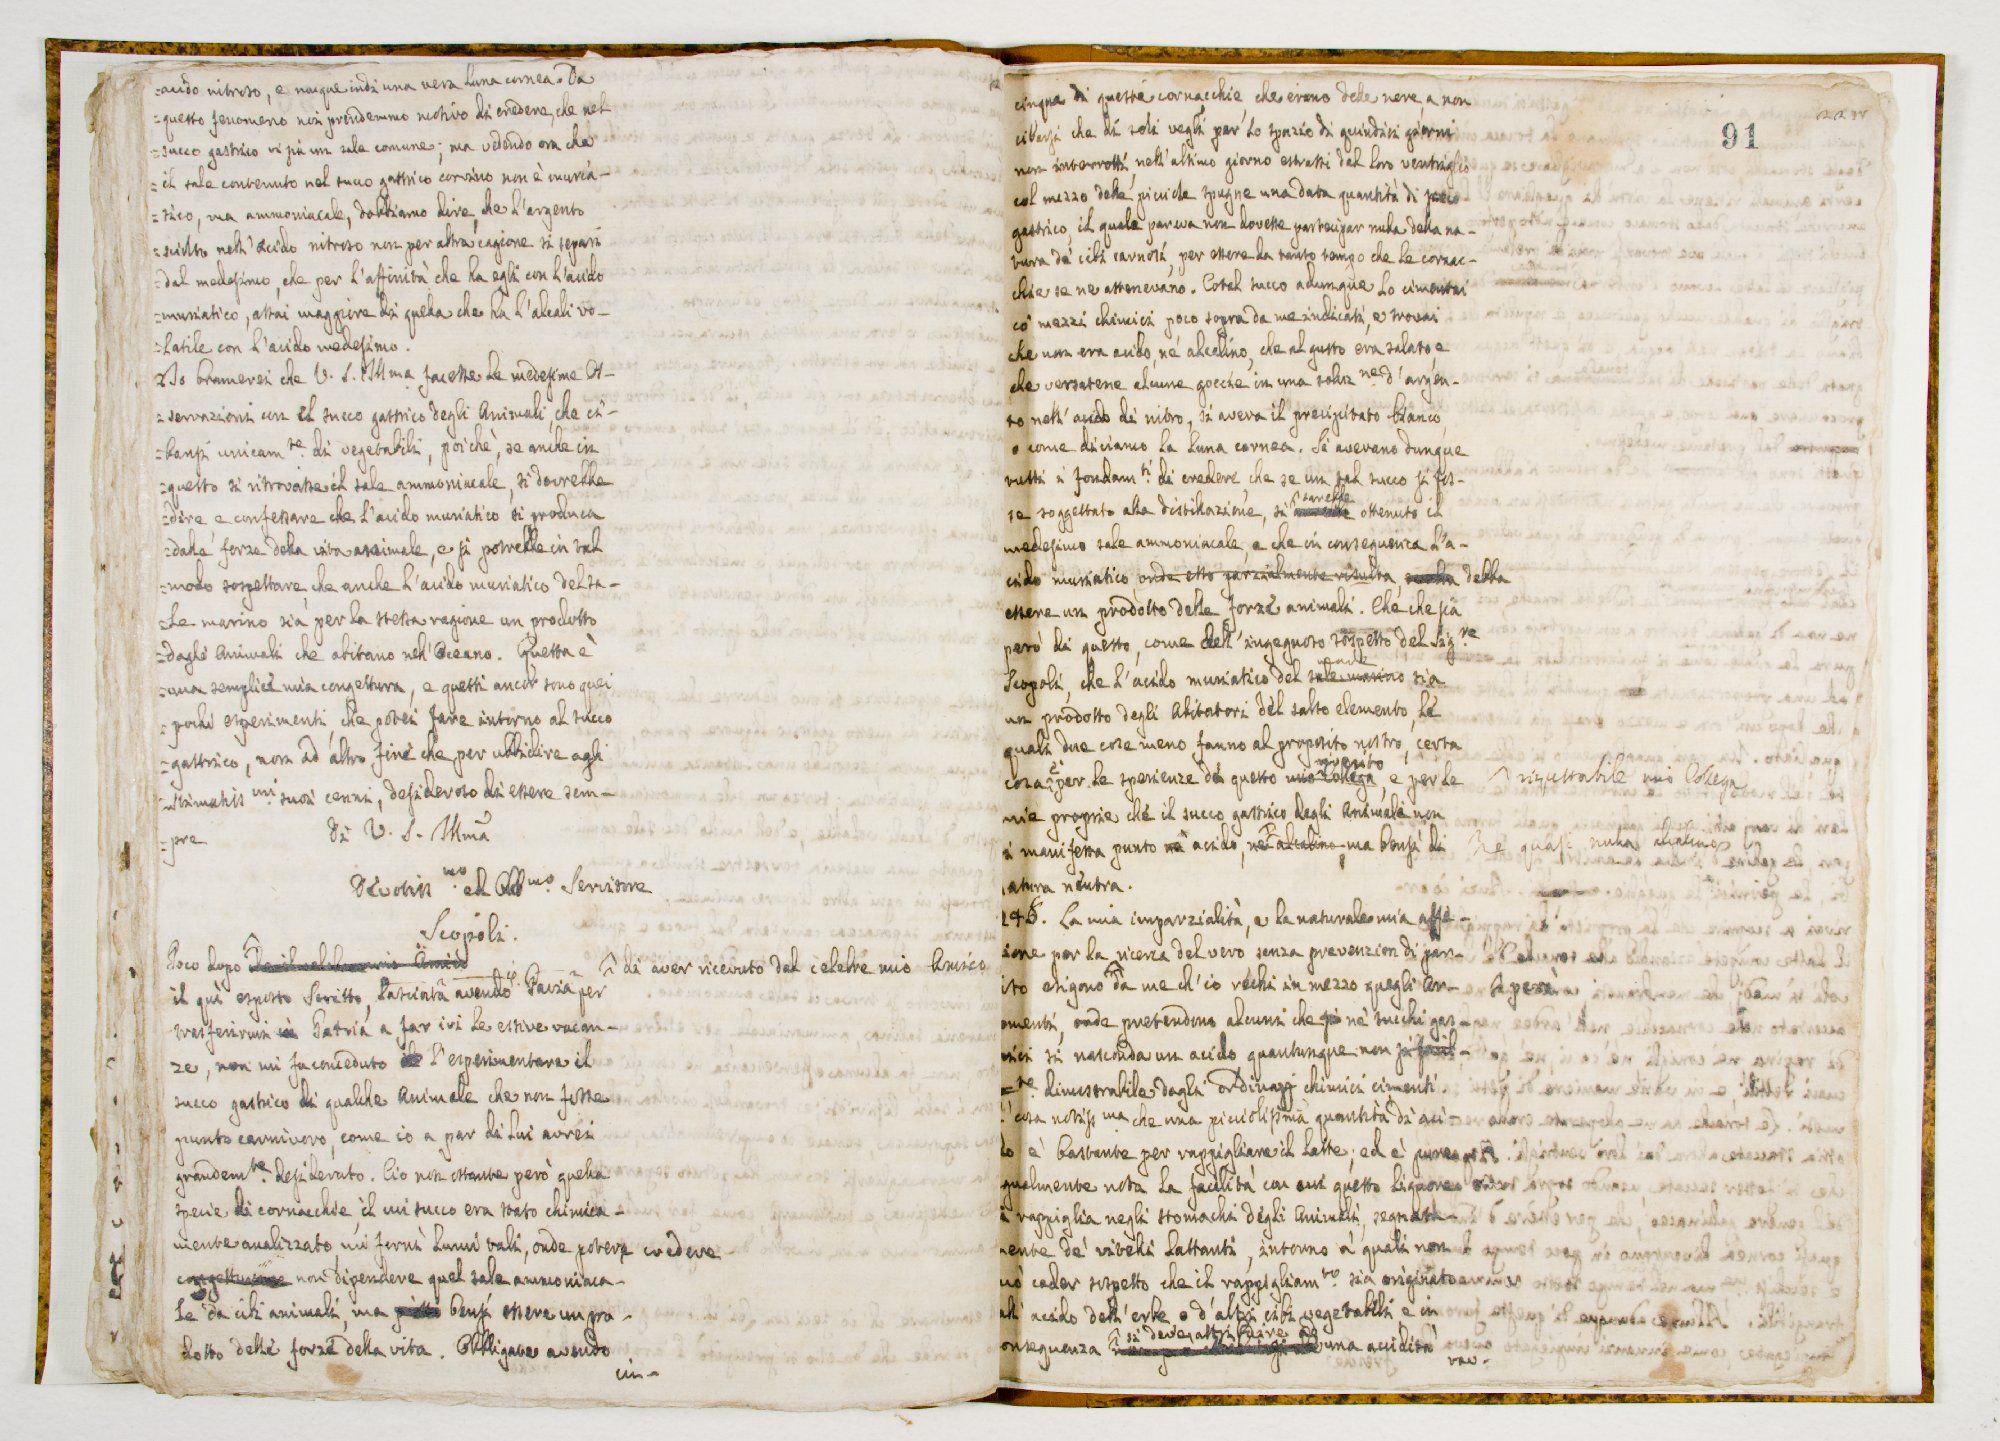 =acido nitroso, e nacque indi una vera Luna cornea. Da
=questo fenomeno noi prendemmo motivo di credere, che nel
=succo gastrico vi sia un sale comune; ma vedendo ora che
=il sale contenuto nel succo gastrico corvino non è muriá-
=tico, ma ammoniacale, dobbiamo dire, che l'argento
=sciolto nell'acido nitroso non per altra cagione si separi
=dal medesimo, che per l'affinità che ha egli con l'acido
=muriatico, assai maggiore di quella che ha l'alcali vo-
=latile con l'acido medesimo.
=Io bramerei che V. S. Illma facesse le medesime Os-
=servazioni con il succo gastrico degli Animali, che ci-
=bansi unicamte di vegetabili, poichè, se anche in
=questo si ritrovasse il sale ammoniacale, si dovrebbe
=dire e confessare che l'acido muriatico si produca
=dalle forze della vita animale, e si potrebbe in tal
=modo sospettare, che anche l'acido muriatico del sa-
=le marino sia per la stessa ragione un prodotto
=dagli Animali che abitano nell'Oceano. Questa è
=una semplice mia congettura, e questi ancor sono quei
=pochi esperimenti, che potei fare intorno al succo
=gastrico, non ad altro fine che per ubbidire agli
=stimatiss.mi suoi cenni, desideroso di essere sem-
=pre Di V. S. Illmã
Divotiss.mo ed Obb.mo Servitore
Scopoli.
Poco dopo di aver ricevuto dal celebre mio Amico
il quì esposto Scritto, lasciata avendo Pavia per
trasferirmi in Patria a far ivi le estive vacan-
ze, non mi fu conceduto l'esperimentare il
succo gastrico di qualche Animale che non fosse
punto carnivoro, come io a par di lui avrei
grandemte desiderato. Ciò non ostante però quella
specie di cornacchie, il cui succo era stato chimica-
mente analizzato, mi fornì lumi tali, onde potere credere
non dipendere quel sale ammoniaca-
le da cibi animali, ma bensì essere un pro-
dotto delle forze della vita. Obbligate avendo
cin-
91
cinque di queste cornacchie che erano delle nere a non
cibarsi che di soli vegli par lo spazio di quindici giorni
non interrotti, nell'ultimo giorno estratti dal loro ventriglio
col mezzo delle picciole spugne una data quantità di succo
gastrico, il quale pareva non dovesse partecipar nulla della na-
tura de' cibi carnosi, per essere da tanto tempo che le cornac-
chie se ne astenevano. Cotal succo adunque lo cimentai
co' mezzi chimici poco sopra da me indicati, e trovai
che non era acido, nè alcalino, che al gusto era salato, e
che versatene alcune goccie in una soluz.ne d'argen-
to nell'acido di nitro, si aveva il precipitato bianco,
o come diciamo la Luna cornea. Si avevano dunque
tutti i fondamti di credere che se un tal succo si fos-
se soggettato alla distillazione, si sarebbe ottenuto il
medesimo sale ammoniacale, e che in conseguenza l'a-
cido muriatico onde esso parzialmente risulta, debba
essere un prodotto delle forze animali. Che che sia
però di questo, come dell'ingegnoso sospetto del Sigre
Scopoli, che l'acido muriatico del sale marino sia
un prodotto degli Abitatori del salso elemento, le
quali due cose meno fanno al proposito nostro, certa
cosa è per le sperienze di questo mio Collega, e per le
rispettabile mio Collega
mie proprie che il succo gastrico degli Animali non
si manifesta punto nè acido, nè alcalino, ma bensì di
Nè quasi nulla alcalino
natura neutra.
La mia imparzialità, e la naturale mia affe-
zione per la ricerca del vero senza prevenzion di par-
tito esigono da me ch'io rechi in mezzo quegli Ar-
gomenti, onde pretendono alcuni che ne' succhi gas-
trici si nasconda un acido quantunque non
dimostrabile dagli ordinarj chimici cimenti.
È cosa notiss.ma che una picciolissima quantità di aci-
do è bastante per rappigliare il latte; ed è pure
egualmente nota la facilità con cui questo liquore
si rappiglia negli stomachi degli Animali, segnata-
mente de' vitelli lattanti, intorno a' quali non
può cader sospetto che il rappigliamto sia originato
dall'acido dell'erbe o d'altri cibi vegetabili e in
conseguenza si deve attribuire ad una acidità